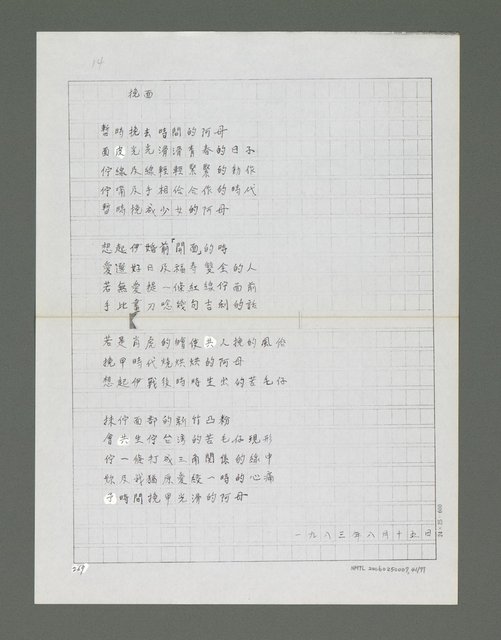 14
挽面
暫時挽去時間的阿母
面皮光光滑滑青春的日子
佇線及線輕輕緊緊的動作
佇嘴及手相佮合作的時代
暫時挽成少女的阿母
想起伊婚前「開面」的時
愛選好日及福壽雙全的人
若無愛提一條紅線佇面前
手比畫刀唸幾句吉利的話
若是肖虎的嘸使共人挽的風俗
挽甲時代燒烘烘的阿母
想起伊戰後時時生出的苦毛仔
抹佇面部的新竹凸粉
會共生佇台灣的苦毛仔現形
佇一條打成三角關係的線中
妳及我猶原愛絞一時的心痛
予時間挽甲光滑的阿母
一九八三年八月十五日
24×25=600
269
NMTL 20060250007.41/77